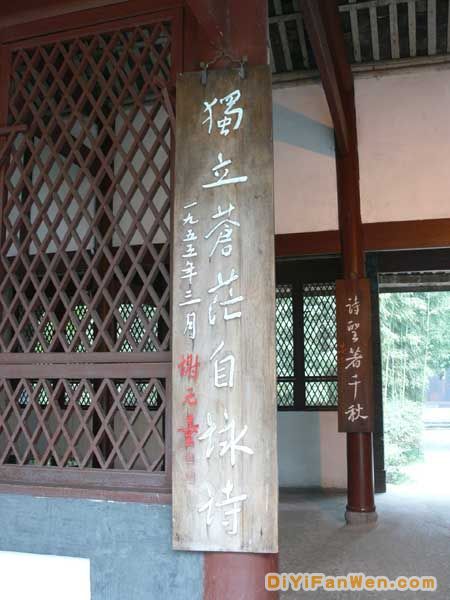 獨立蒼茫自咏诗
一九五五年三月 謝无量
诗聖著千秋
DiYiFanWen.com